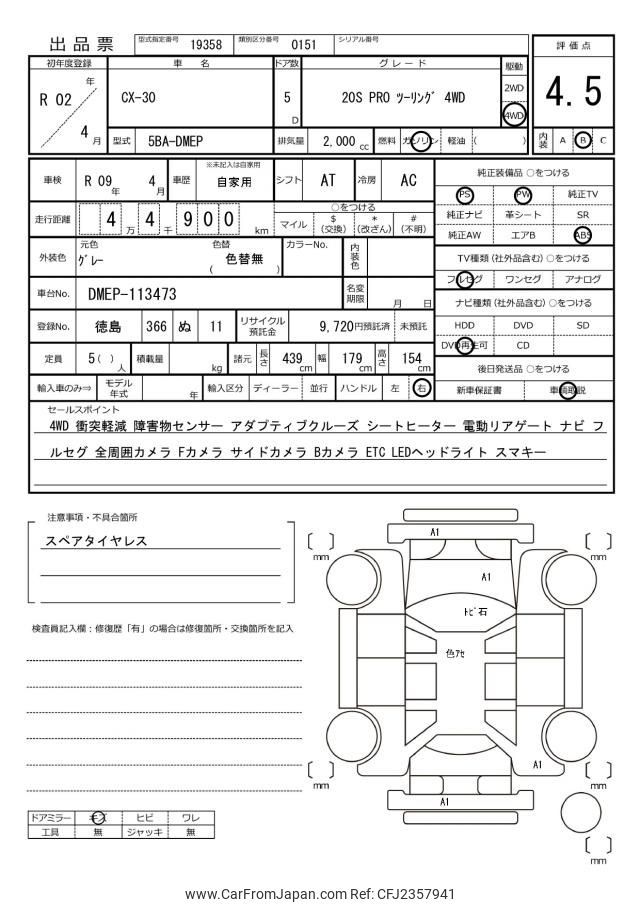 出品票 型式指定番号 19358 類別区分番号 0151 シリアル番号
評価点
4.5
内装 A B C
初年度登録 車名 ドア数 グレード 駆動
R 02 年 4 月 CX-30 5 D 20S PRO ツーリング 4WD 2WD 4WD
型式 5BA-DMEP 排気量 2,000 cc 燃料 ガソリン 軽油 ( )
車検 R 09 年 4 月 車歴 ※未記入は自家用 自家用 シフト AT 冷房 AC
走行距離 4 4 万 千 9 0 0 km
○をつける
マイル $ (交換) * (改ざん) # (不明)
外装色 元色 グレー 色替 ( 色替無 ) カラーNo. 内装色
車台No. DMEP-113473 名変期限 月 日
登録No. 徳島 366 ぬ 11 リサイクル預託金 9,720円預託済 未預託
定員 5( ) 人 積載量 kg 諸元 長さ 439 cm 幅 179 cm 高さ 154 cm
輸入車のみ⇒ モデル年式 年 輸入区分 ディーラー 並行 ハンドル 左 右
純正装備品 ○をつける
PS PW 純正TV
純正ナビ 革シート SR
純正AW エアB ABS
TV種類 (社外品含む) ○をつける
フルセグ ワンセグ アナログ
ナビ種類 (社外品含む) ○をつける
HDD DVD SD
DVD再生可 CD
後日発送品 ○をつける
新車保証書 車輌取説
セールスポイント
4WD 衝突軽減 障害物センサー アダプティブクルーズ シートヒーター 電動リアゲート ナビ フ
ルセグ 全周囲カメラ Fカメラ サイドカメラ Bカメラ ETC LEDヘッドライト スマキー
注意事項・不具合箇所
スペアタイヤレス
検査員記入欄：修復歴「有」の場合は修復箇所・交換箇所を記入
A1
A1
トビ石
色アセ
A1
A1
mm
mm
mm
mm
mm
ドアミラー キズ ヒビ ワレ
工具 無 ジャッキ 無
www.CarFromJapan.com Ref: CFJ2357941